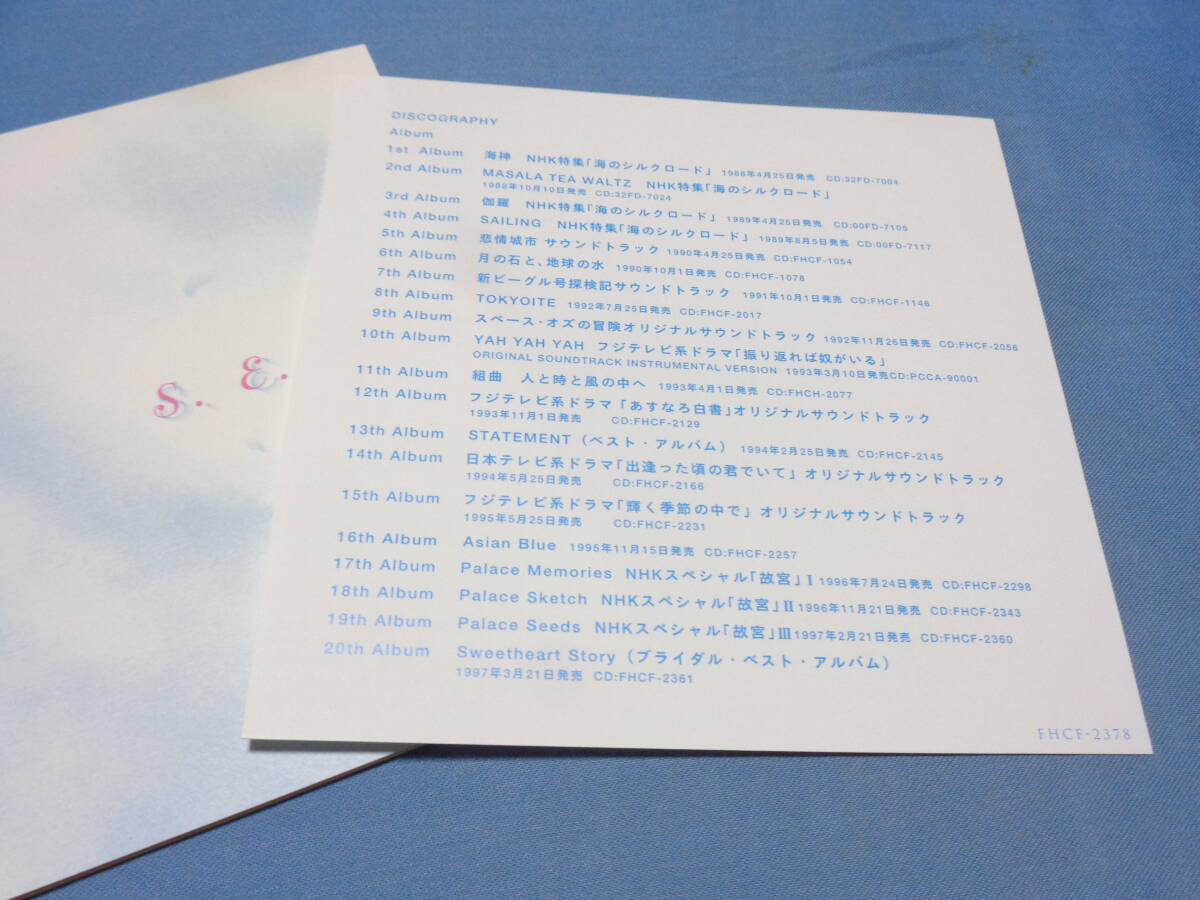 DISCOGRAPHY
Album
1st Album 海神 NHK特集「海のシルクロード」 1988年4月25日発売 CD:32FD-7004
2nd Album MASALA TEA WALTZ NHK特集「海のシルクロード」
1988年10月10日発売 CD:32FD-7024
3rd Album 伽羅 NHK特集「海のシルクロード」 1989年4月25日発売 CD:00FD-7105
4th Album SAILING NHK特集「海のシルクロード」 1989年8月5日発売 CD:00FD-7117
5th Album 悲情城市 サウンドトラック 1990年4月25日発売 CD:FHCF-1054
6th Album 月の石と、地球の水 1990年10月1日発売 CD:FHCF-1078
7th Album 新ビーグル号探検記サウンドトラック 1991年10月1日発売 CD:FHCF-1146
8th Album TOKYOITE 1992年7月25日発売 CD:FHCF-2017
9th Album スペース・オズの冒険オリジナルサウンドトラック 1992年11月26日発売 CD:FHCF-2056
10th Album YAH YAH YAH フジテレビ系ドラマ「振り返れば奴がいる」
ORIGINAL SOUNDTRACK INSTRUMENTAL VERSION 1993年3月10日発売CD:PCCA-90001
11th Album 組曲 人と時と風の中へ 1993年4月1日発売 CD:FHCH-2077
12th Album フジテレビ系ドラマ「あすなろ白書」オリジナルサウンドトラック
1993年11月1日発売 CD:FHCF-2129
13th Album STATEMENT（ベスト・アルバム） 1994年2月25日発売 CD:FHCF-2145
14th Album 日本テレビ系ドラマ「出逢った頃の君でいて」オリジナルサウンドトラック
1994年5月25日発売 CD:FHCF-2166
15th Album フジテレビ系ドラマ「輝く季節の中で」オリジナルサウンドトラック
1995年5月25日発売 CD:FHCF-2231
16th Album Asian Blue 1995年11月15日発売 CD:FHCF-2257
17th Album Palace Memories NHKスペシャル「故宮」Ⅰ 1996年7月24日発売 CD:FHCF-2298
18th Album Palace Sketch NHKスペシャル「故宮」Ⅱ 1996年11月21日発売 CD:FHCF-2343
19th Album Palace Seeds NHKスペシャル「故宮」Ⅲ 1997年2月21日発売 CD:FHCF-2360
20th Album Sweetheart Story（ブライダル・ベスト・アルバム）
1997年3月21日発売 CD:FHCF-2361
FHCF-2378
S・E・